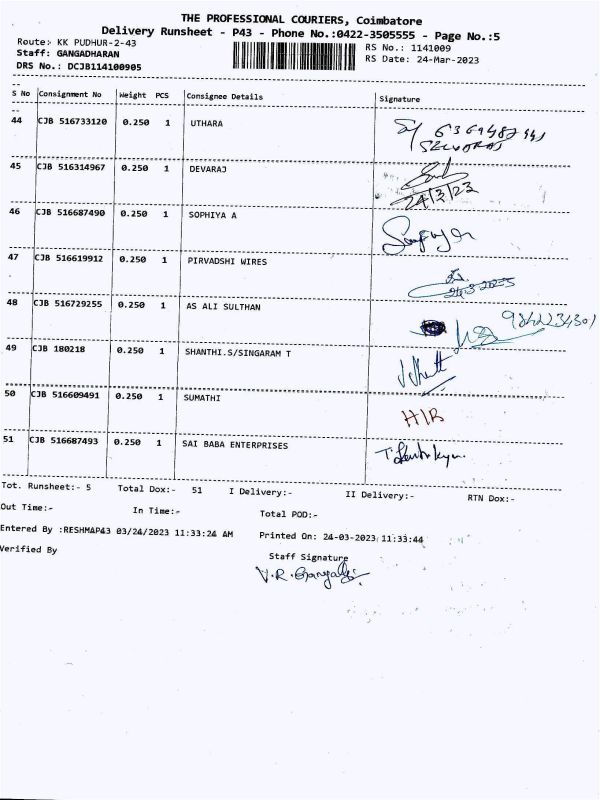 THE PROFESSIONAL COURIERS, Coimbatore
Delivery Runsheet - P43 - Phone No.:0422-3505555 - Page No.:5
Route:- KK PUDHUR-2-43
RS No.: 1141009
Staff: GANGADHARAN
RS Date: 24-Mar-2023
DRS No.: DCJB114100905
S No Consignment No Weight PCS Consignee Details Signature
44 CJB 516733120 0.250 1 UTHARA
SELVARAJ
45 CJB 516314967 0.250 1 DEVARAJ
24/3/23
46 CJB 516687490 0.250 1 SOPHIYA A
47 CJB 516619912 0.250 1 PIRVADSHI WIRES
24.3.2023
48 CJB 516729255 0.250 1 AS ALI SULTHAN
49 CJB 180218 0.250 1 SHANTHI.S/SINGARAM T
50 CJB 516609491 0.250 1 SUMATHI
H/R
51 CJB 516687493 0.250 1 SAI BABA ENTERPRISES
Tot. Runsheet:- 5 Total Dox:- 51 I Delivery:- II Delivery:- RTN Dox:-
Out Time:- In Time:- Total POD:-
Entered By :RESHMAP43 03/24/2023 11:33:24 AM Printed On: 24-03-2023 11:33:44
Verified By
Staff Signature